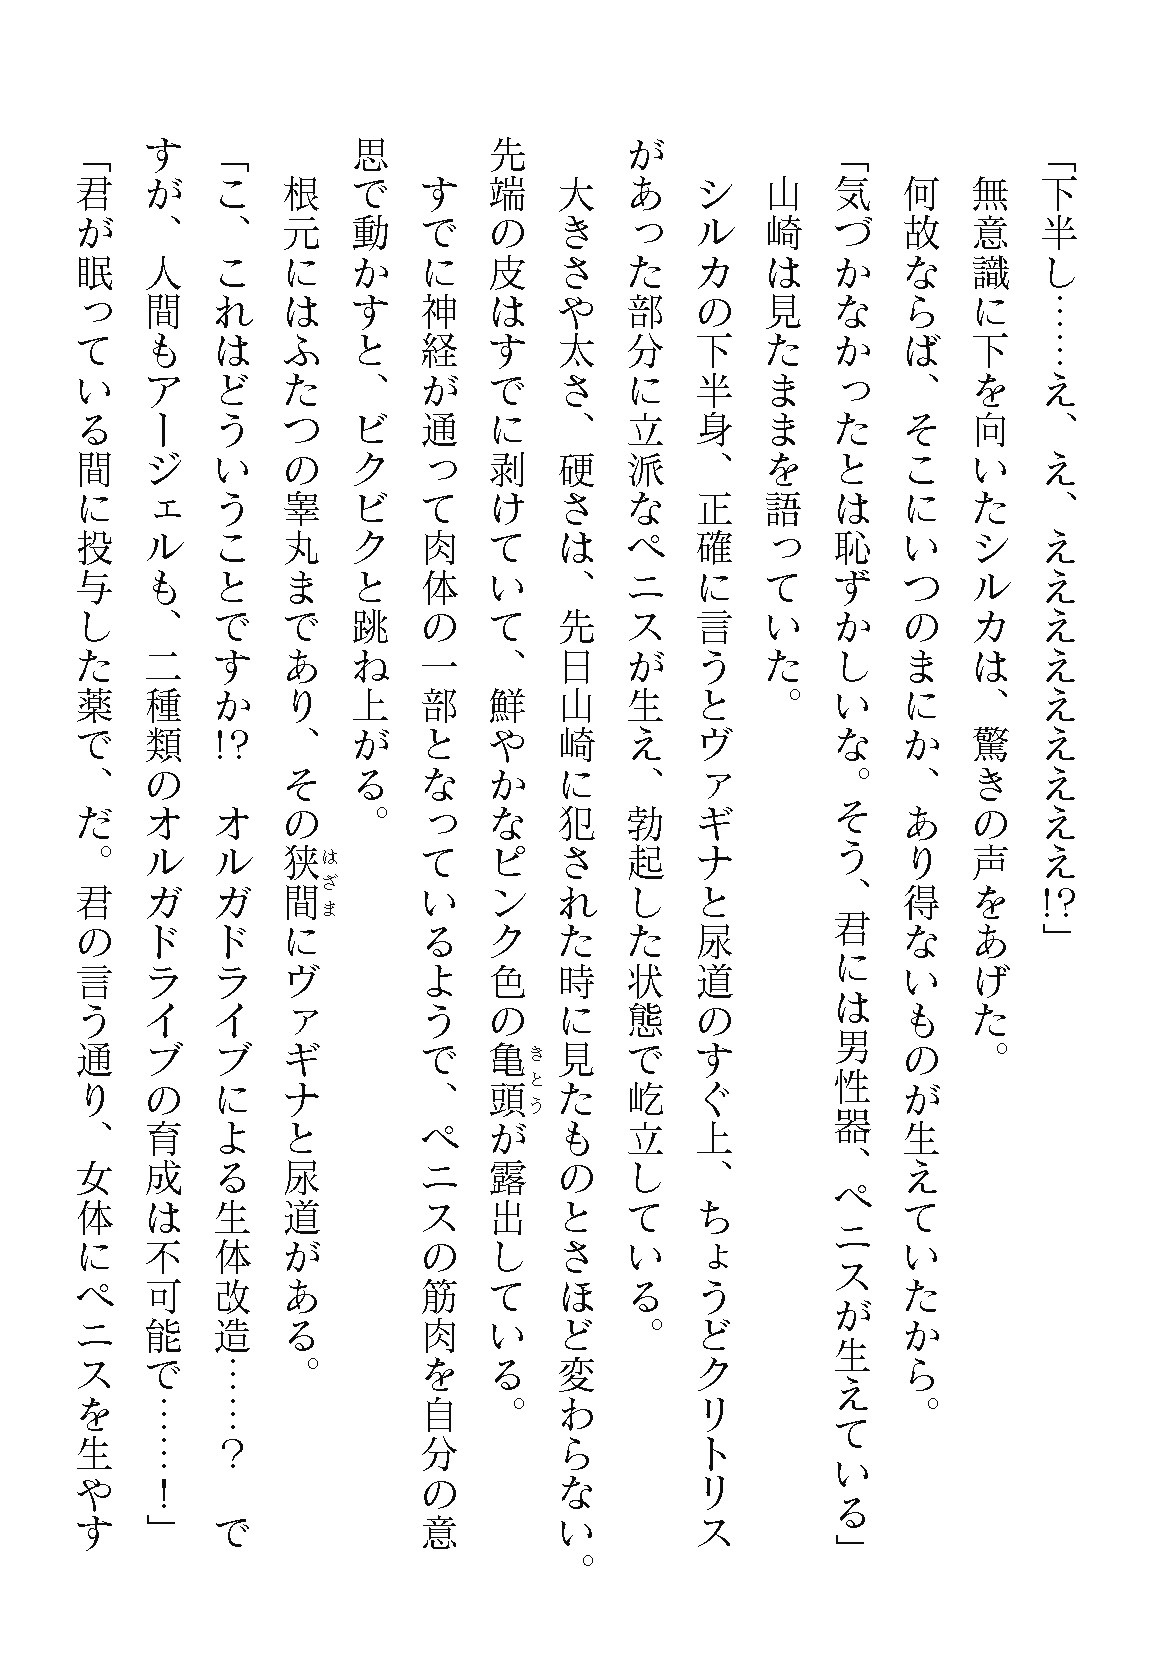 「下半し……え、え、えええええええええ!?」
　無意識に下を向いたシルカは、驚きの声をあげた。
　何故ならば、そこにいつのまにか、あり得ないものが生えていたから。
「気づかなかったとは恥ずかしいな。そう、君には男性器、ペニスが生えている」
　山崎は見たままを語っていた。
　シルカの下半身、正確に言うとヴァギナと尿道のすぐ上、ちょうどクリトリス
があった部分に立派なペニスが生え、勃起した状態で屹立している。
　大きさや太さ、硬さは、先日山崎に犯された時に見たものとさほど変わらない。
先端の皮はすでに剥けていて、鮮やかなピンク色の亀頭が露出している。
きとう
　すでに神経が通って肉体の一部となっているようで、ペニスの筋肉を自分の意
思で動かすと、ビクビクと跳ね上がる。
　根元にはふたつの睾丸まであり、その狭間にヴァギナと尿道がある。
はざま
「こ、これはどういうことですか!?　オルガドライブによる生体改造……？　で
すが、人間もアージェルも、二種類のオルガドライブの育成は不可能で……！」
「君が眠っている間に投与した薬で、だ。君の言う通り、女体にペニスを生やす